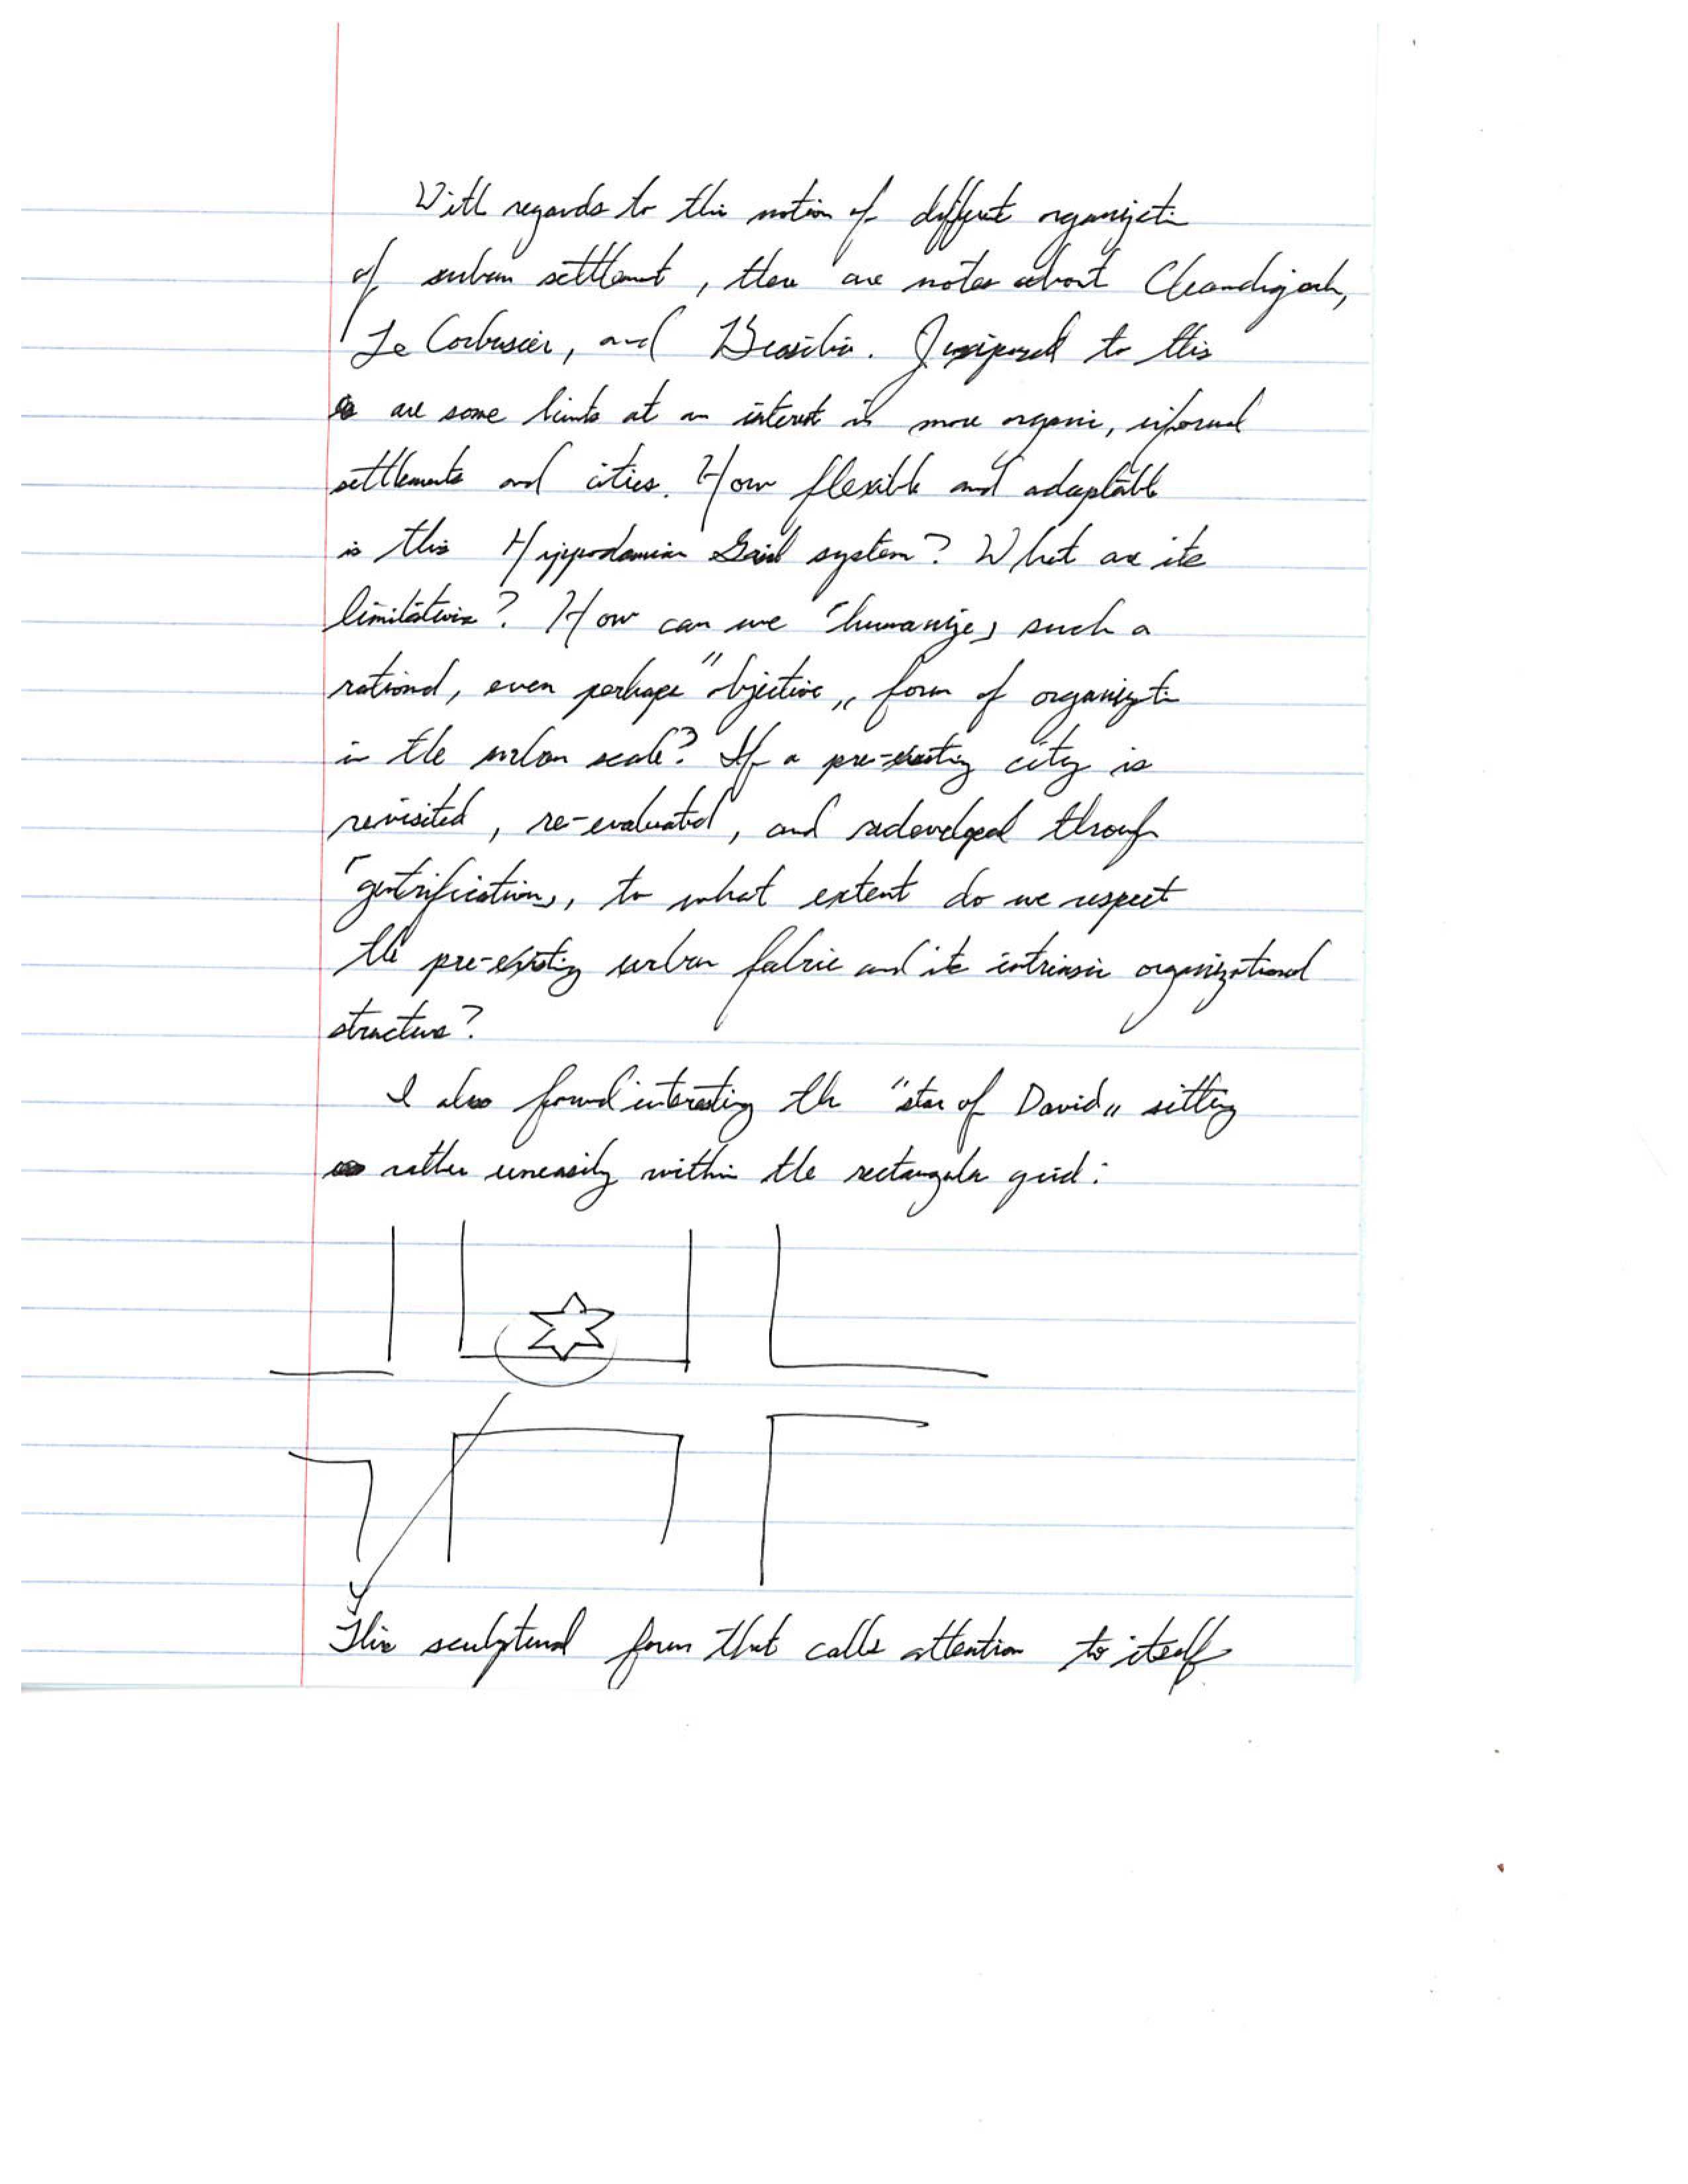 With regards to this notion of different organization
of urban settlement, there are notes about Chandigarh,
Le Corbusier, and Brasilia. Juxtaposed to this
are some hints at an interest in more organic, informal
settlements and cities. How flexible and adaptable
is this Hippodamian Grid system? What are its
limitations? How can we "humanize" such a
rational, even perhaps "objective" form of organization
in the urban scale? If a pre-existing city is
revisited, re-evaluated, and redeveloped through
"gentrification", to what extent do we respect
the pre-existing urban fabric and its intrinsic organizational
structure?
I also found interesting the "star of David" sitting
rather uneasily within the rectangular grid:
This sculptural form that calls attention to itself